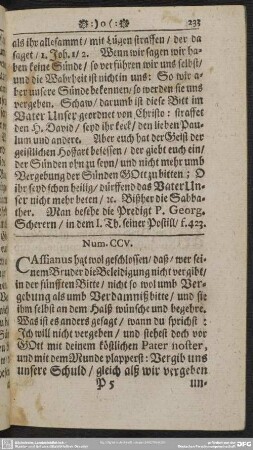 :)o(: 233
als ihr allesammt / mit Lügen straffen / der da
saget / 1. Joh. 1/2. Wenn wir sagen wir ha-
ben keine Sünde / so verführen wir uns selbst /
und die Wahrheit ist nicht in uns: So wir a-
ber unsere Sünde bekennen / so werden sie uns
vergeben. Schaw / darumb ist diese Bitt im
Vater Unser geordnet von Christo: straffet
den H. David / seyd ihr keck / den lieben Pau-
lum und andere. Aber euch hat der Geist der
geistlichen Hoffart besessen / der giebt euch ein /
der Sünden ohn zu seyn / und nicht mehr umb
Vergebung der Sünden Gott zu bitten; O
ihr seyd schon heilig / dürffend das Vater Un-
ser nicht mehr beten / ec. Bißher die Sabba-
ther. Man besehe die Predigt P. Georg.
Scherern / in dem I. Th. seiner Postill / f. 423.
Num. CCV.
CAssianus hat wol geschlossen / daß / wer sei-
nem Bruder die Beleidigung nicht vergibt /
in der fünfften Bitte / nicht so wol umb Ver-
gebung als umb Verdamniß bitte / und sie
ihm selbst an dem Halß wünsche und begehre.
Was ist es anders gesagt / wann du sprichst:
Ich will nicht vergeben / und stehest doch vor
GOtt mit deinem köstlichen Pater noster,
und mit dem Munde plapperst: Vergib uns
unsere Schuld / gleich alß wir vergeben
P 5 un-